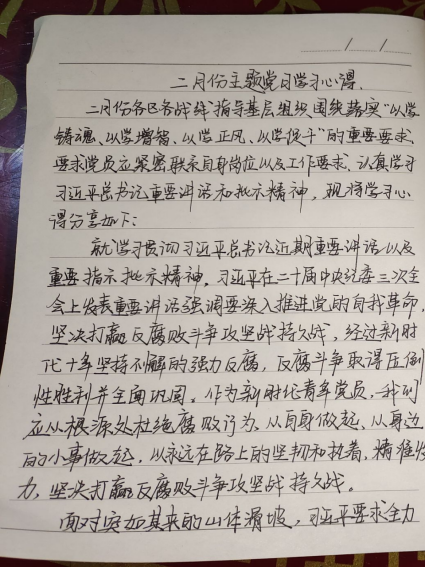 二月份主题党日学习心得
二月份各区各战线指导基层组织围绕落实“以学
铸魂、以学增智、以学正风、以学促干”的重要要求，
要求党员应紧密联系自身岗位以及工作要求，认真学习
习近平总书记重要讲话和批示精神，现将学习心
得分享如下：
就学习贯彻习近平总书记近期重要讲话以及
重要指示批示精神，习近平在二十届中央纪委三次全
会上发表重要讲话强调要深入推进党的自我革命，
坚决打赢反腐败斗争攻坚战持久战，经过新时
代十年坚持不懈的强力反腐，反腐斗争取得压倒
性胜利并全面巩固。作为新时代青年党员，我们
应从根源处杜绝腐败行为，从自身做起，从身边
的小事做起，以永远在路上的坚韧和执着，精准发
力，坚决打赢反腐败斗争攻坚战持久战。
面对突如其来的山体滑坡，习近平要求全力